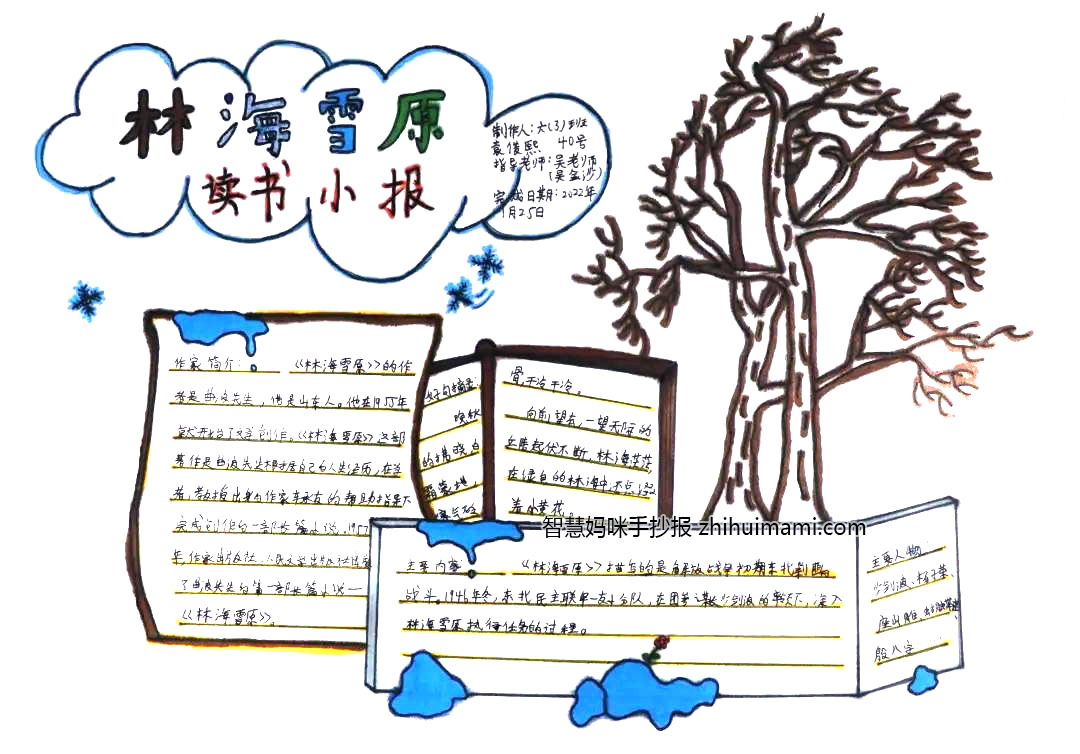 林海雪原
读书小报
制作人:六(3)班
袁俊熙 40号
指导老师:吴老师
完成日期:2022年
1月25日
作家简介: 《林海雪原》的作
者是曲波先生,他是山东人。他在1955年
开始了文学创作。《林海雪原》这部
著作是曲波先生根据自己的人生经历,在
作家
完成创作的一部长篇小说。1957
年,作家出版社、人民文学出版社出版
了曲波先生的第一部长篇小说——
《林海雪原》。
好句摘录:
晚秋
的拂晓,白
霜蒙地,
寒气砭
骨,干冷干冷。
向前望去,一望无际的
丘陵起伏不断,林海茫茫
在绿白的林海中还点缀
着小黄花。
智慧妈咪手抄报 zhihuimami.com
主要内容: 《林海雪原》描写的是解放战争初期东北剿匪
战斗。1946年冬,东北民主联军一支小分队,在团参谋长少剑波的率领下,深入
林海雪原执行任务的过程。
主要人物:
少剑波、杨子荣、
座山雕、